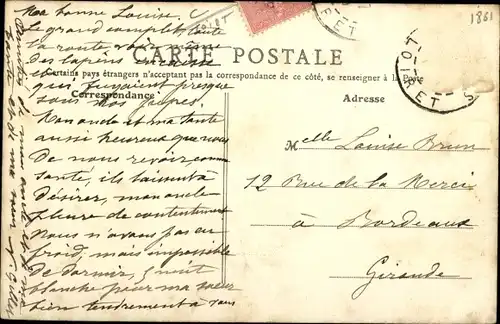 Ma bonne Louise,
Le grand complet toute
la route
des lapins
et
CARTE POSTALE
Certains pays étrangers n'acceptent pas la correspondance de ce côté, se renseigner à la Poste
qui fuyaient presque
sous nos jupes.
Correspondance
Mon oncle et ma tante
aussi heureux que nous
de nous revoir, comme
santé, ils laissent à
désirer, mon oncle
pleure de contentement
Nous n'avons pas eu
froid, mais impossible
de dormir,
blanche pour ma sœur
bien tendrement à vous
Adresse
Melle Louise Brun
12 Rue de la Merci
à Bordeaux
Gironde
1861
LOIRET
RET